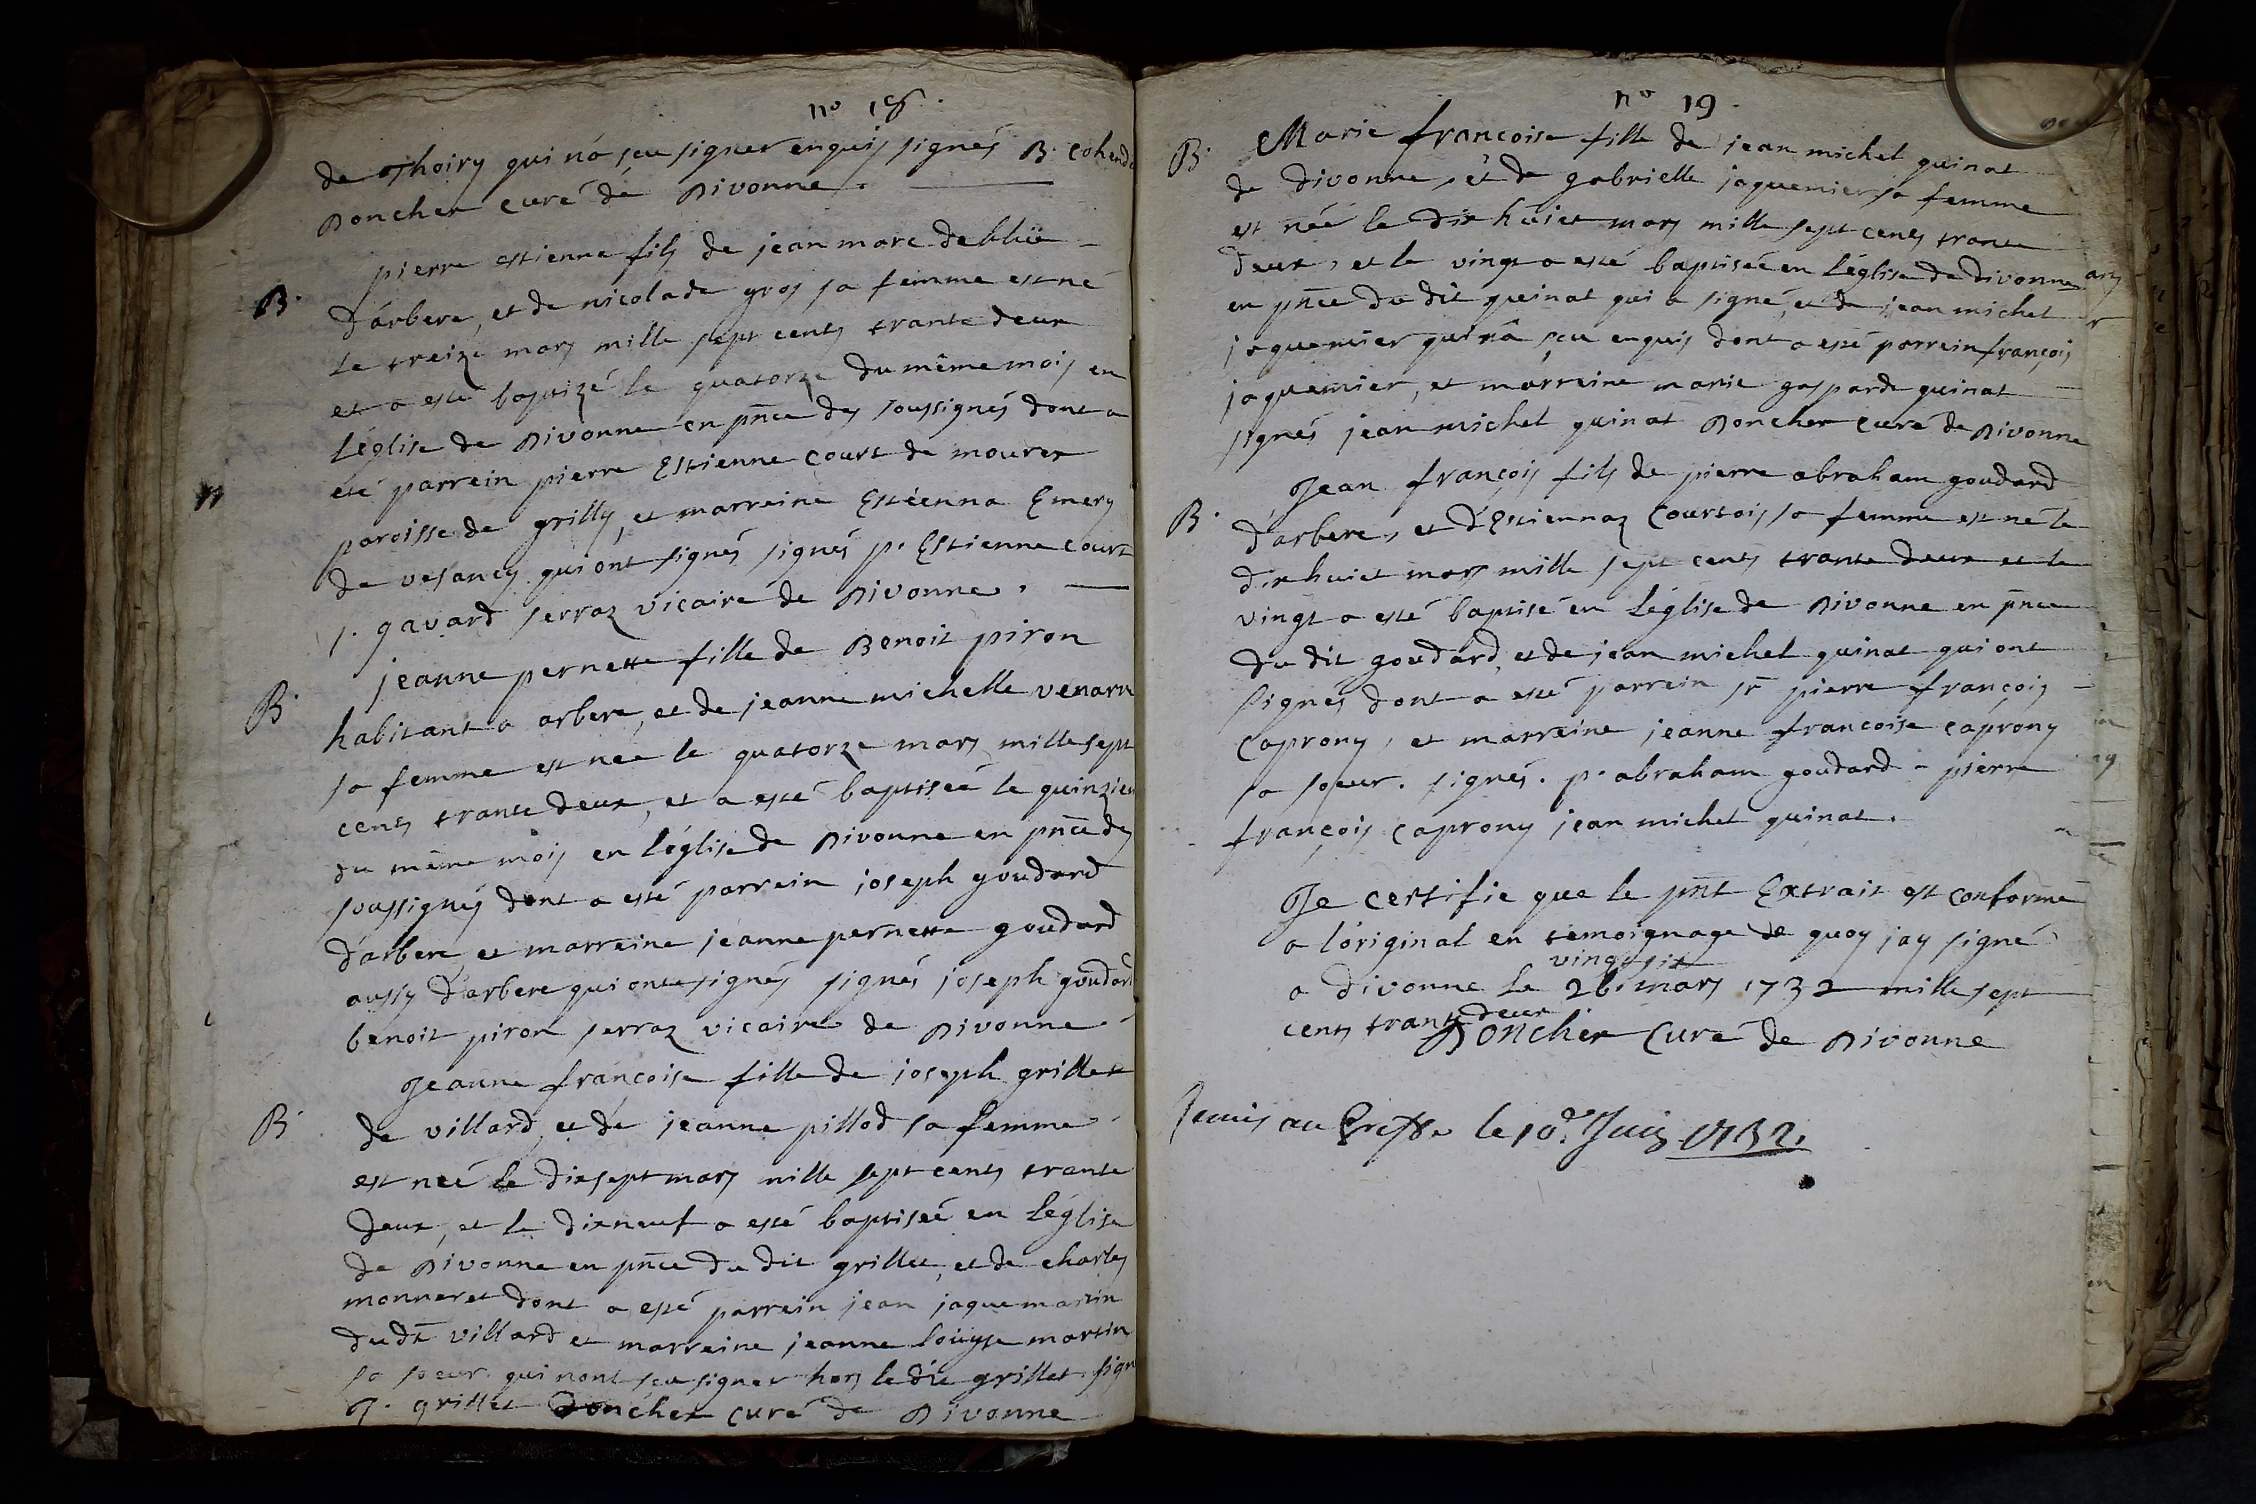 no 18.
de Thoiry qui na sçu signer enquis signés B. Cohendo
Doncher curé de Divonne.
B. pierre estienne fils de jean marc debluë
d'arbere, et de nicolade gros sa femme est né
le treize mars mille sept cents trante deux
et a esté baptizé le quatorze du même mois en
L'église de Divonne en pnce des soussignés dont a
eté parrein pierre Estienne Court de mourex
paroisse de grilly, et marreine Estéenna Emery
de vesancy qui ont signés signés p. Estienne Court
j. gavard serraz vicaire de Divonne.
B. jeanne pernette fille de Benoit piron
habitant a arbere, et de jeanne michelle venarre
sa femme est neé le quatorze mars mille sept
cents trante deux, et a esté baptiseé le quinzie
du même mois en l'église de Divonne en pnce des
soussignés dont a esté parrein joseph goudard
d'arbere et marreine jeanne pernette goudard
aussy d'arbere qui ont signés signés joseph goudard
benoit piron serraz vicaire de Divonne.
B. Jeanne françoise fille de joseph grillet
de villard, et de jeanne pillod sa femme
est neé le dixsept mars mille sept cents trante
deux, et le dixneuf a esté baptiseé en L'église
de Divonne en pnce du dit grillet, et de charles
monneret dont a esté parrein jean jaque martin
dudt villard et marreine jeanne loüyse martin
sa soeur qui nont sçu signer hors le dit grillet sign
J. grillet Doncher curé de Divonne
no 19.
B. Marie françoise fille de jean michel quinat
de divonne, et de gabrielle jaquemier sa femme
est neé le dix huict mars mille sept cents trante
deux, et le vingt a esté baptiseé en L'église de divonne
en pnce du dit quinat qui a signé, et de jean michel
jaquemier qui na sçu enquis dont a esté parrein françois
jaquemier, et marreine marie gasparde quinat
signés jean michel quinat Doncher curé de Divonne
B. Jean françois fils de pierre abraham goudard
d'arbere, et d'Estiennaz Courtois sa femme est né le
dixhuict mars mille sept cents trante deux et le
vingt a esté baptisé en L'église de Divonne en pnce
du dit goudard, et de jean michel quinat qui ont
signés dont a esté parrein sr pierre françois
Caprony, et marreine jeanne françoise caprony
sa soeur. signés. p. abraham goudard - pierre
françois caprony jean michel quinat.
Je certifie que le pnt Extrait est conforme
a l'original en temoignage de quoy jay signé
vingt six
a divonne le 26 mars 1732 mille sept
cents trante deux
Doncher Curé de Divonne
Remis au Greffe le 10e Juin 1732.